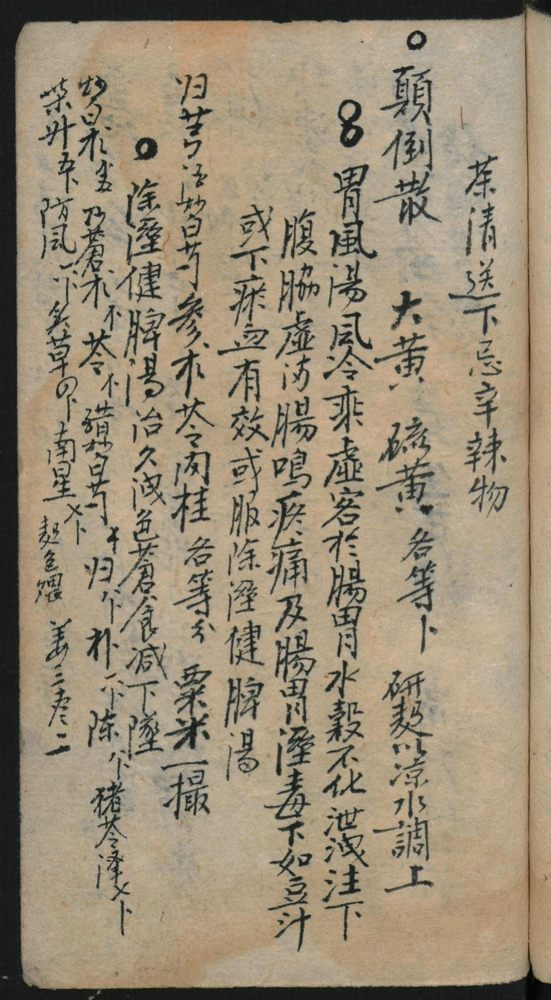 茶清送下忌辛辣物
○顛倒散 大黄 硫黄 各等卜 研䴷以凉水調上
胃風湯風冷乘虛客於腸胃水穀不化泄洩注下
腹脇虛滿腸鳴疼痛及腸胃溼毒下如豆汁
或下瘀血有效或服除溼健脾湯
归芎 炒白芍參朮苓肉桂各等分粟米一撮
○除溼健脾湯治久洩色蒼食減下墜
炒白朮 炒蒼朮 苓 炒白芍 归 朴 陈 猪苓泽
柴升 防風 炙草 南星 姜三枣二